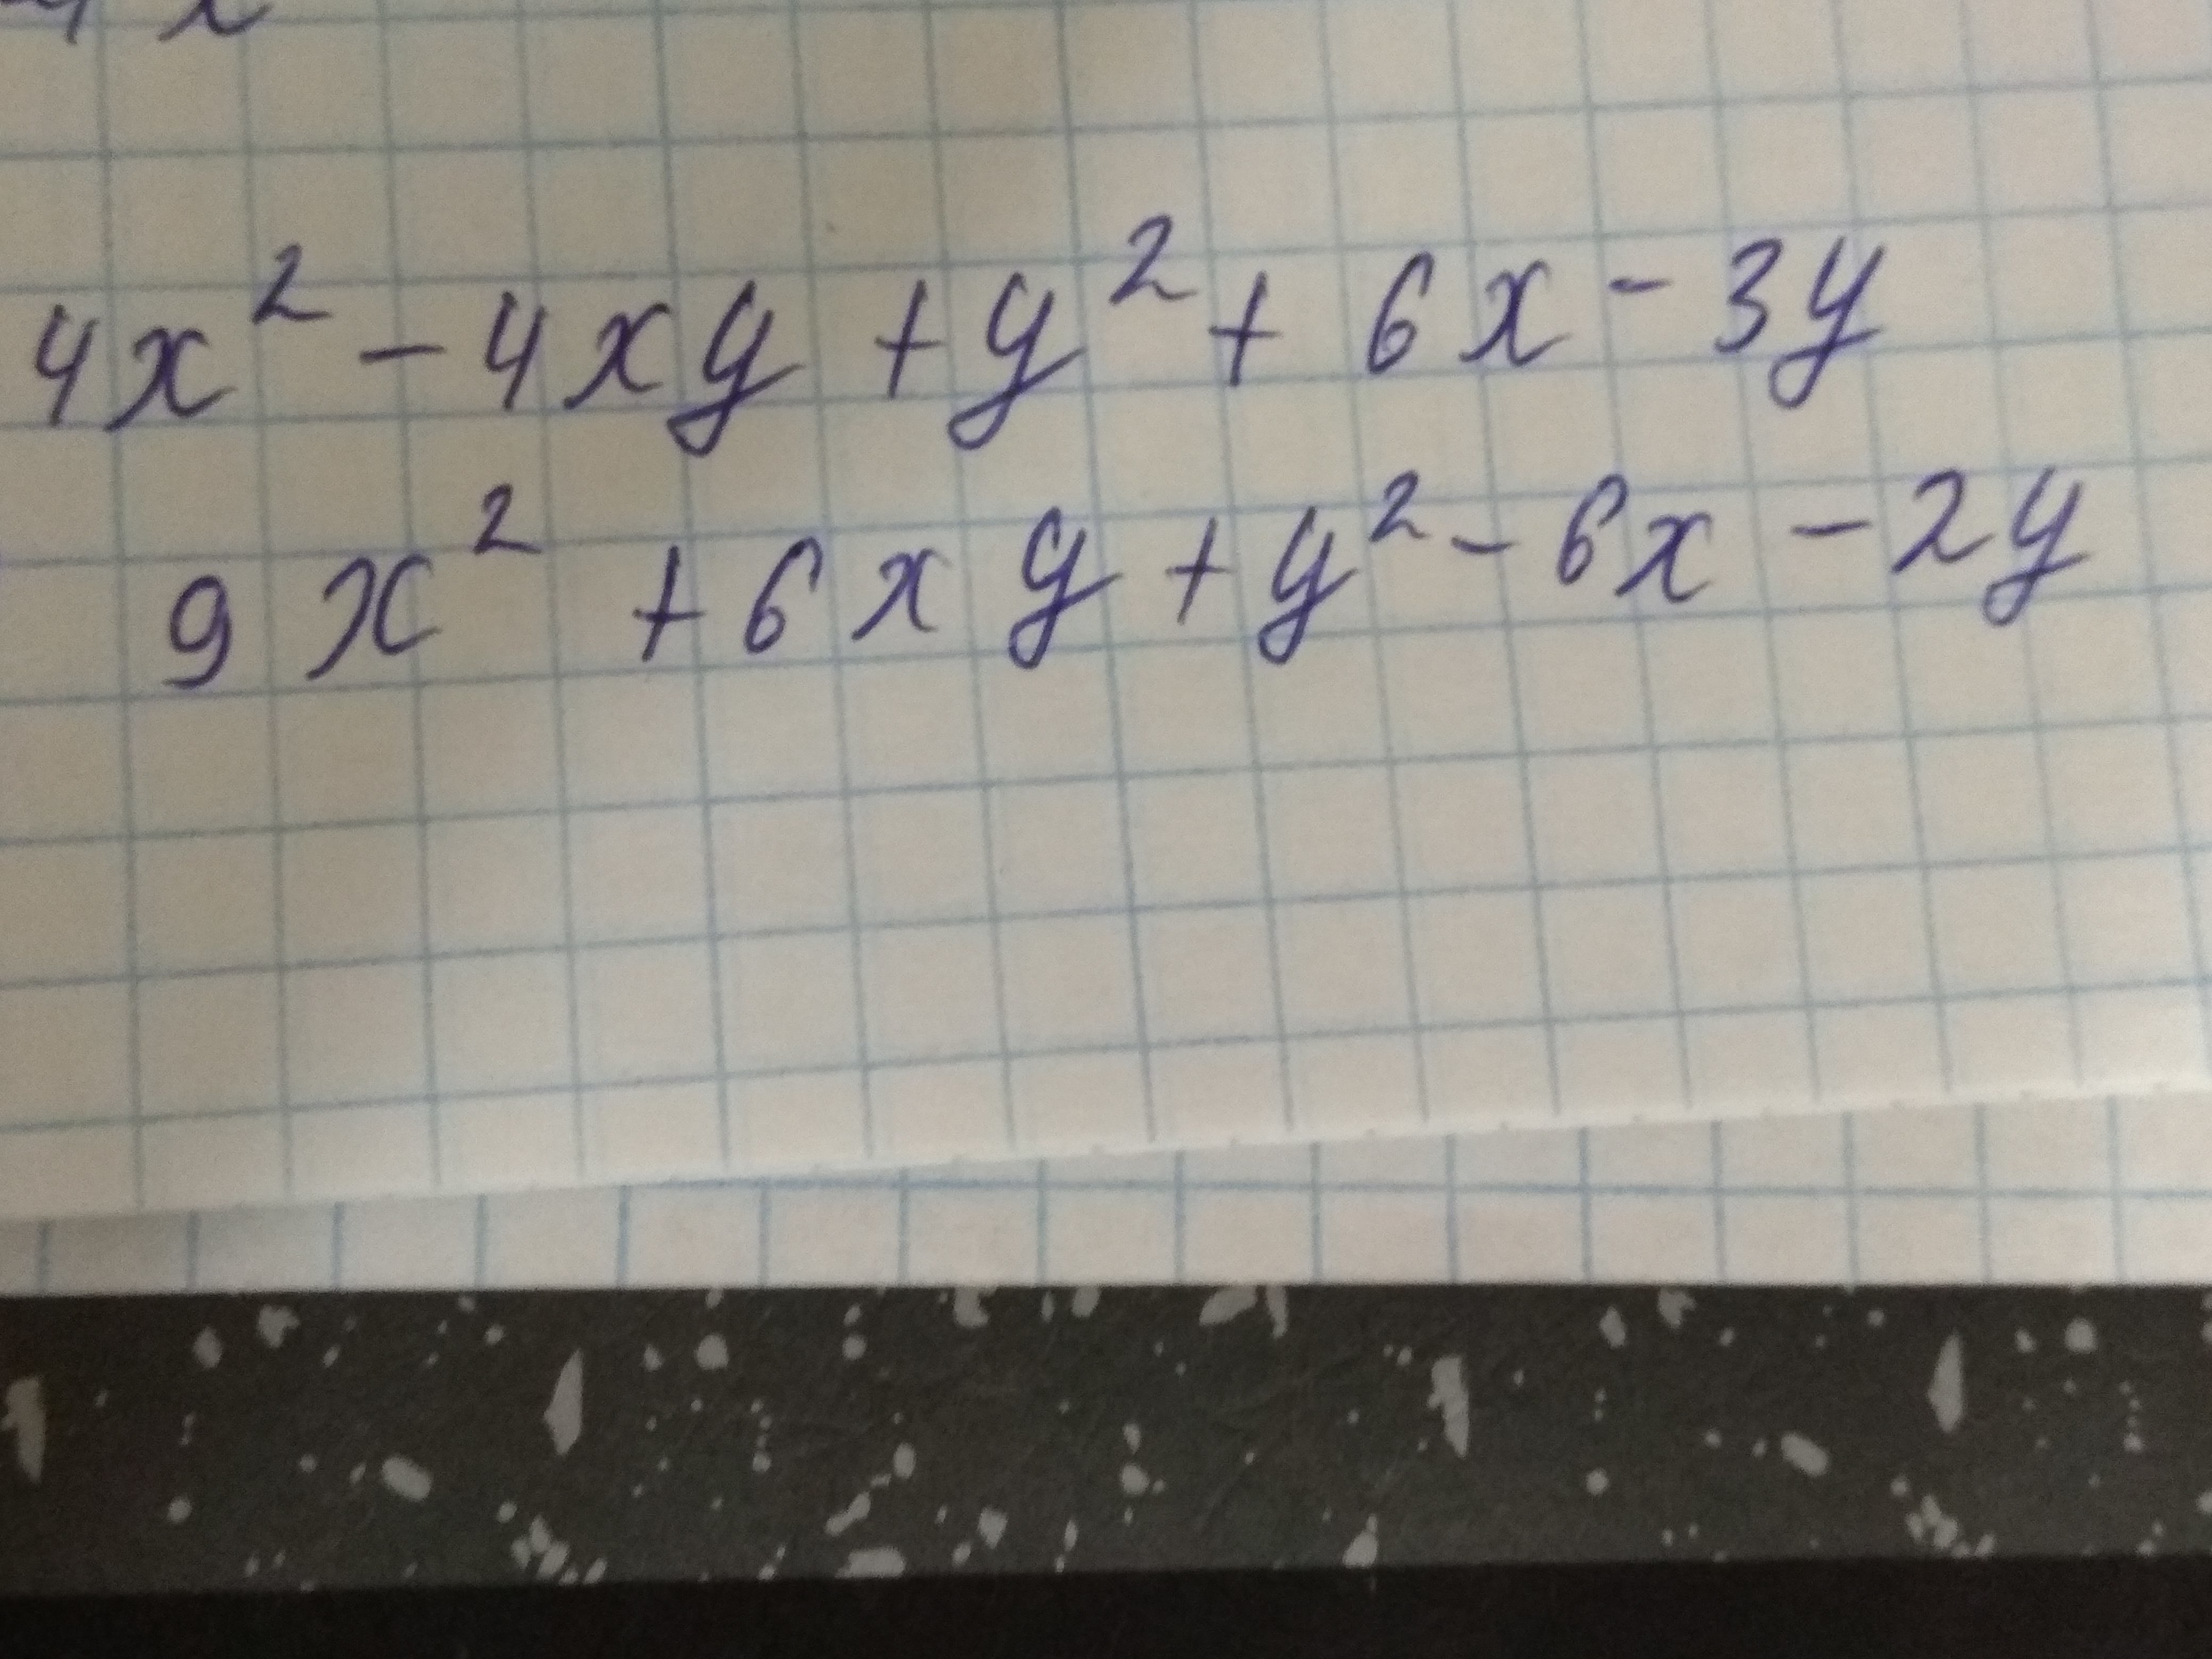 4x² - 4xy + y² + 6x - 3y
9x² + 6xy + y² - 6x - 2y